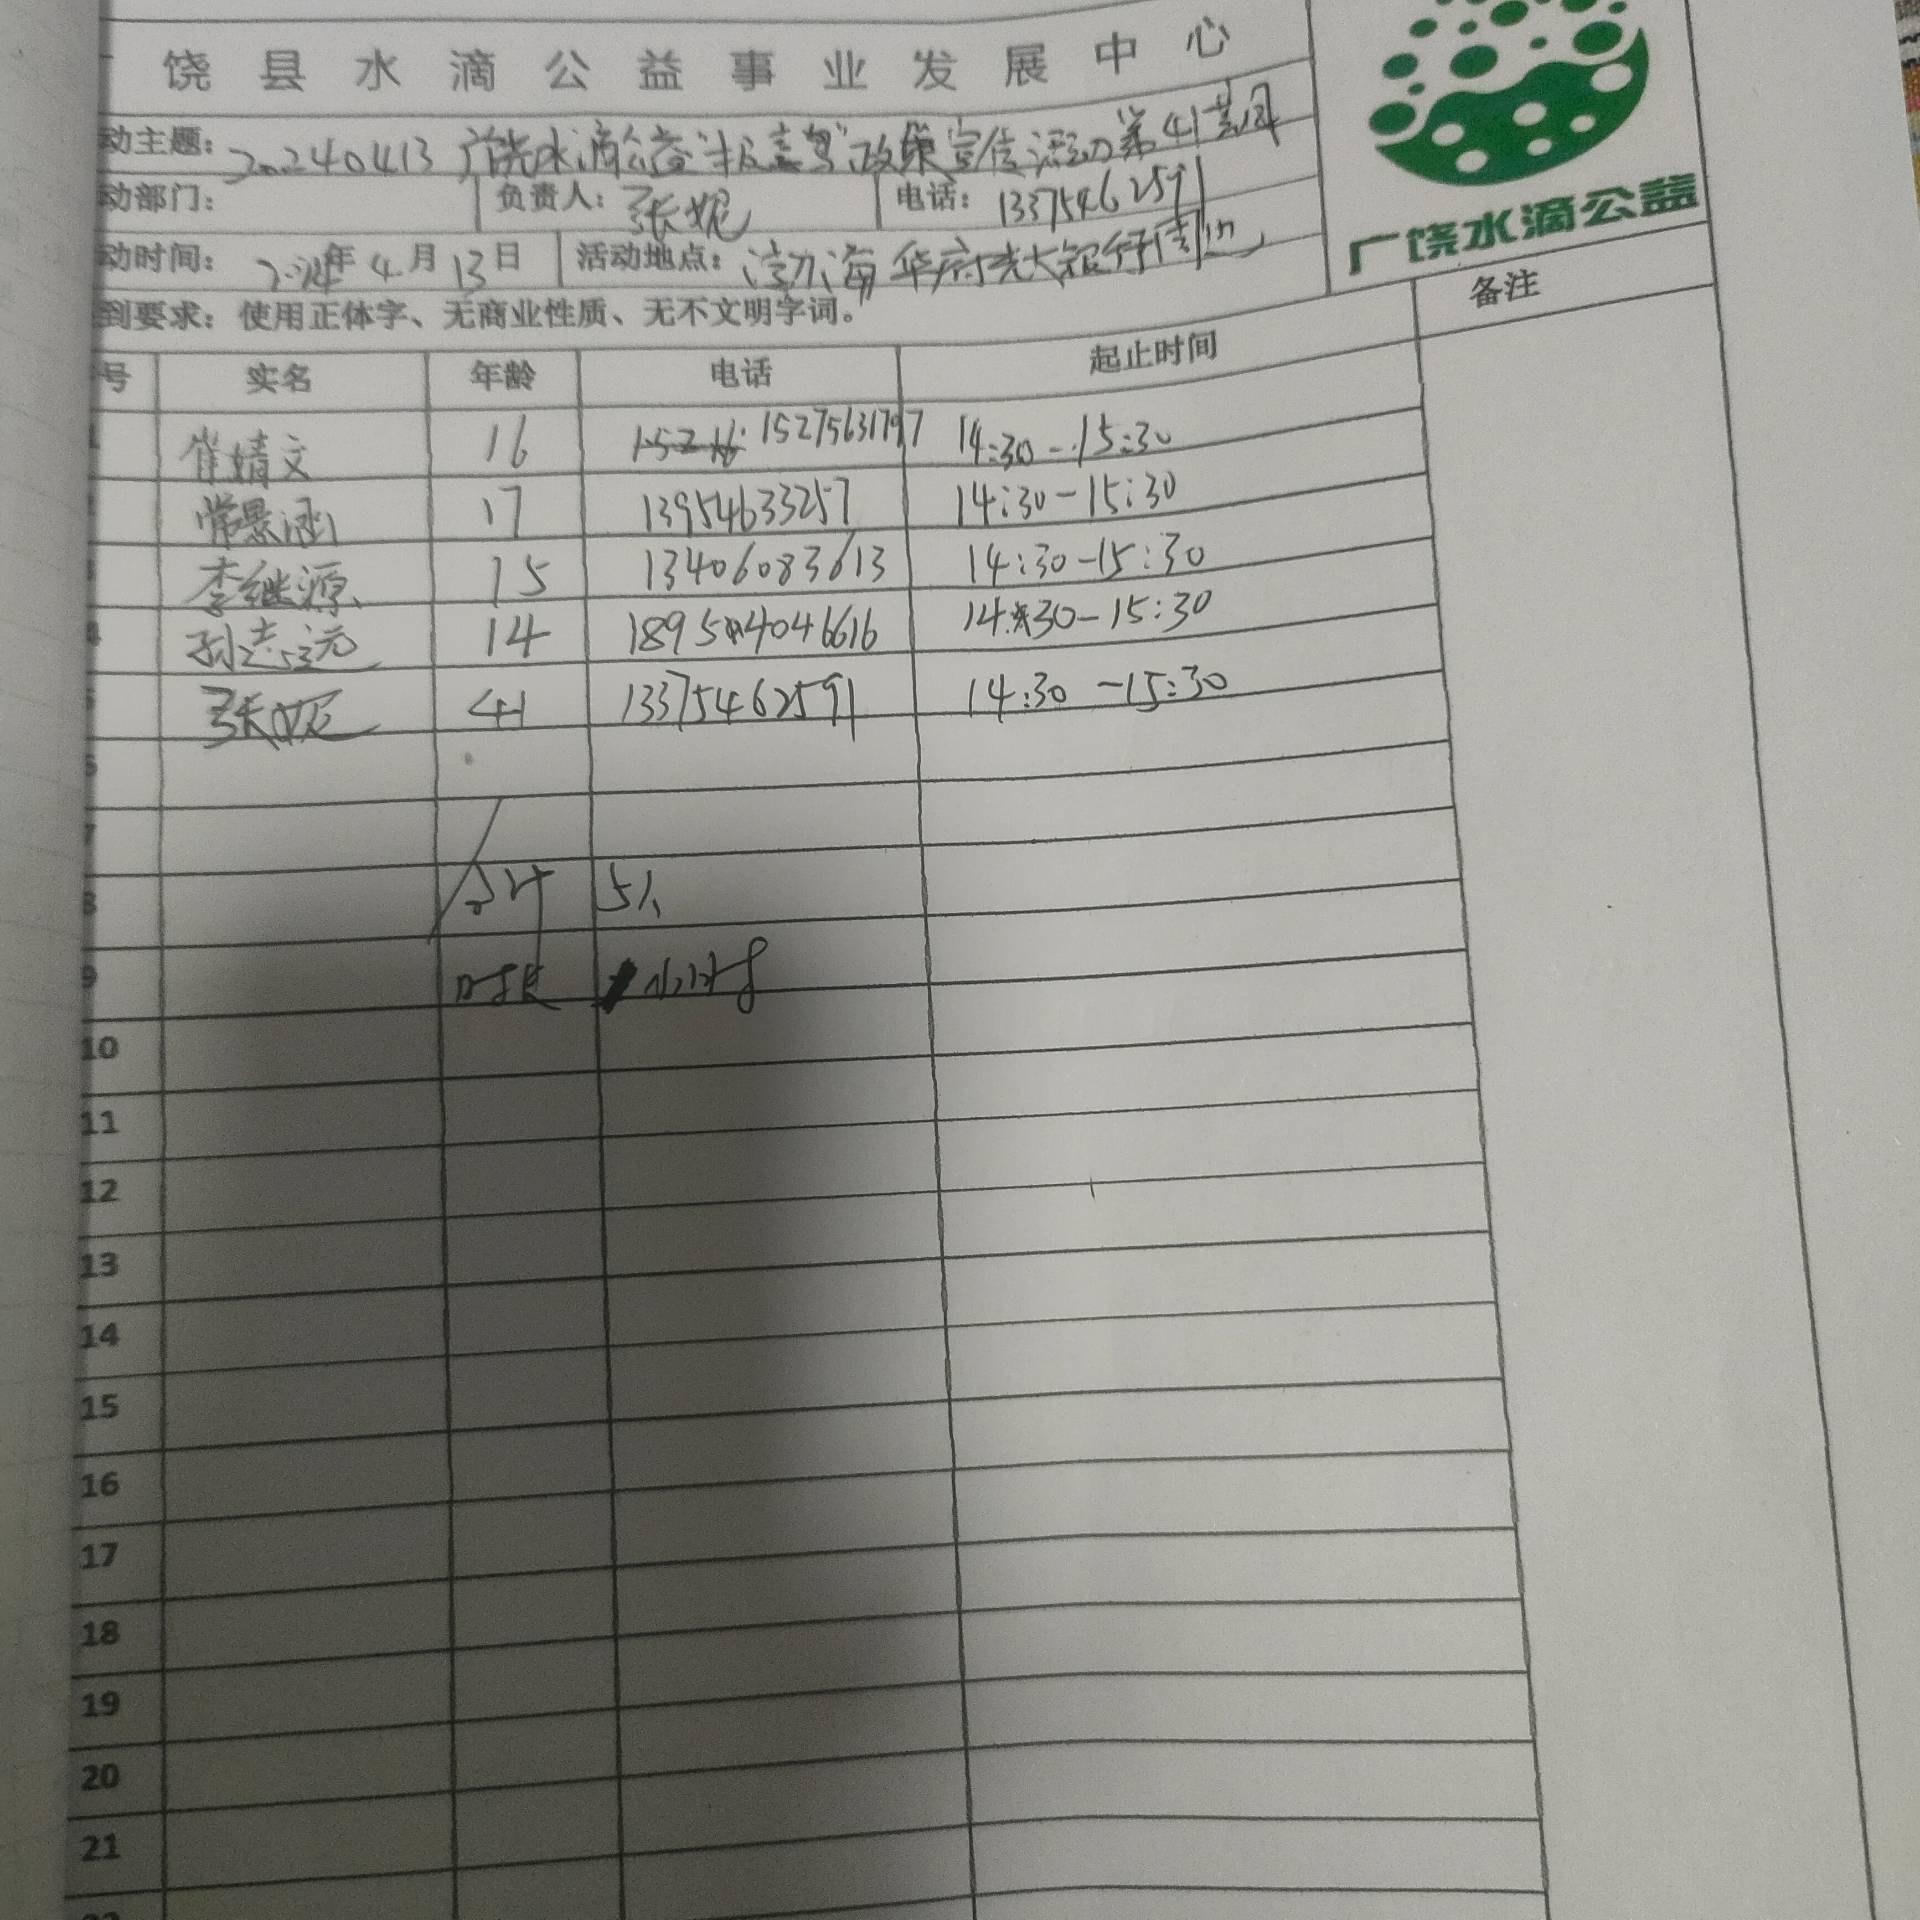 饶县水滴公益事业发展中心
广饶水滴公益
动主题: 20240413 广饶水滴公益"米袁喜驾"政策宣传活动第41期
动部门: 负责人: 张妮 电话: 13375462591
动时间: 2024年4月13日 活动地点: 渤海华府光大银行周边
到要求: 使用正体字、无商业性质、无不文明字词。
号 实名 年龄 电话 起止时间 备注
崔婧文 16 15275631797 14:30-15:30
常景涵 17 13954633257 14:30-15:30
李继源 15 13406083613 14:30-15:30
孙志远 14 18954046616 14:30-15:30
张妮 41 13375462591 14:30-15:30
6
7
8 合计 5人
9 时长 小时
10
11
12
13
14
15
16
17
18
19
20
21